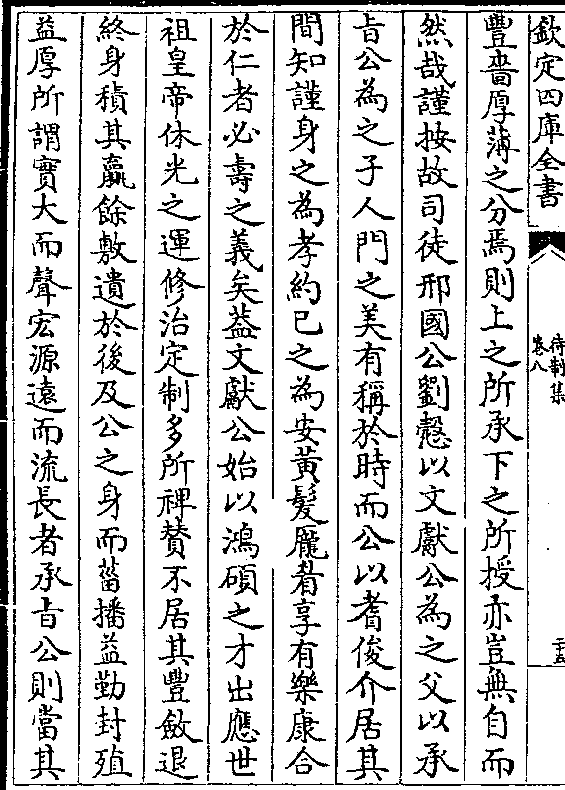 欽定四庫全書
待制集
卷八
二十五
豐嗇厚薄之分焉則上之所承下之所授亦豈無自而
然哉謹按故司徒邢國公劉愨以文獻公為之父以承
㫖公為之子人門之美有稱於時而公以耆俊介居其
間知謹身之為孝約已之為安黄髮龎眉享有樂康合
於仁者必壽之義矣葢文獻公始以鴻碩之才出應世
祖皇帝休光之運修治定制多所裨賛不居其豐斂退
終身積其贏餘敷遺於後及公之身而菑播益勤封殖
益厚所謂實大而聲宏源遠而流長者承㫖公則當其